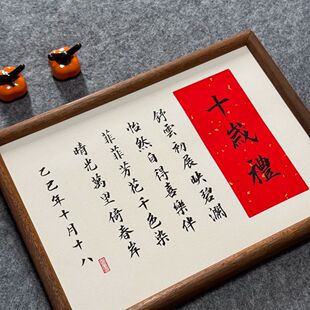 十歲禮
舒雲初展映碧瀾
怡然自得喜樂伴
菲菲芳花千色染
時光萬里倚春岸
乙巳年十月十八